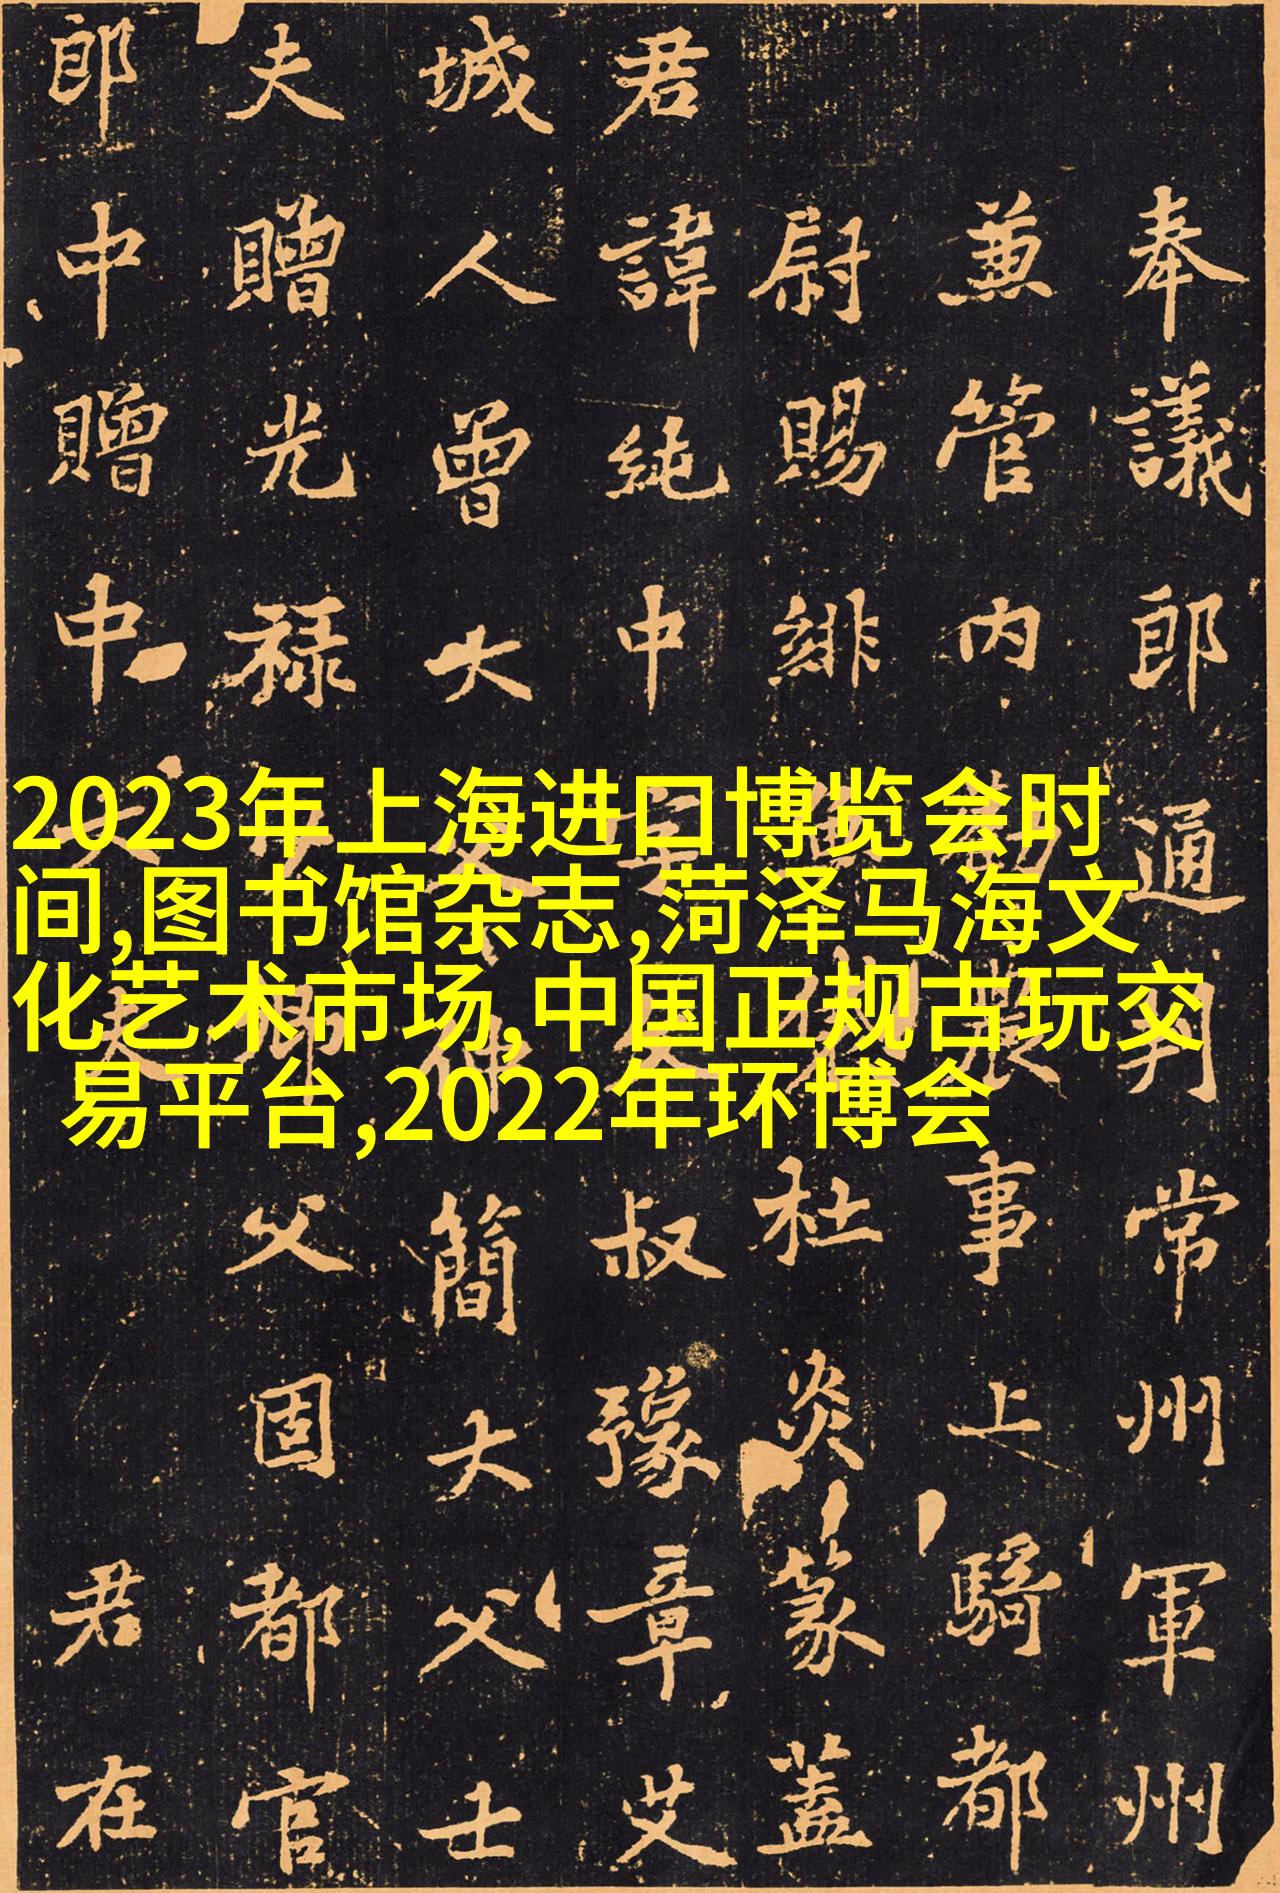 2023年上海进口博览会时
间,图书馆杂志,菏泽马海文
化艺术市场,中国正规古玩交
易平台,2022年环博会
奉議郎通判常州軍州
兼管内勸農事上騎都
尉賜緋杜炎篆蓋
君諱純中字叔豫章艾
城人曾大父仲簡大父士
夫贈光禄父固都官
郎中贈中大夫君在